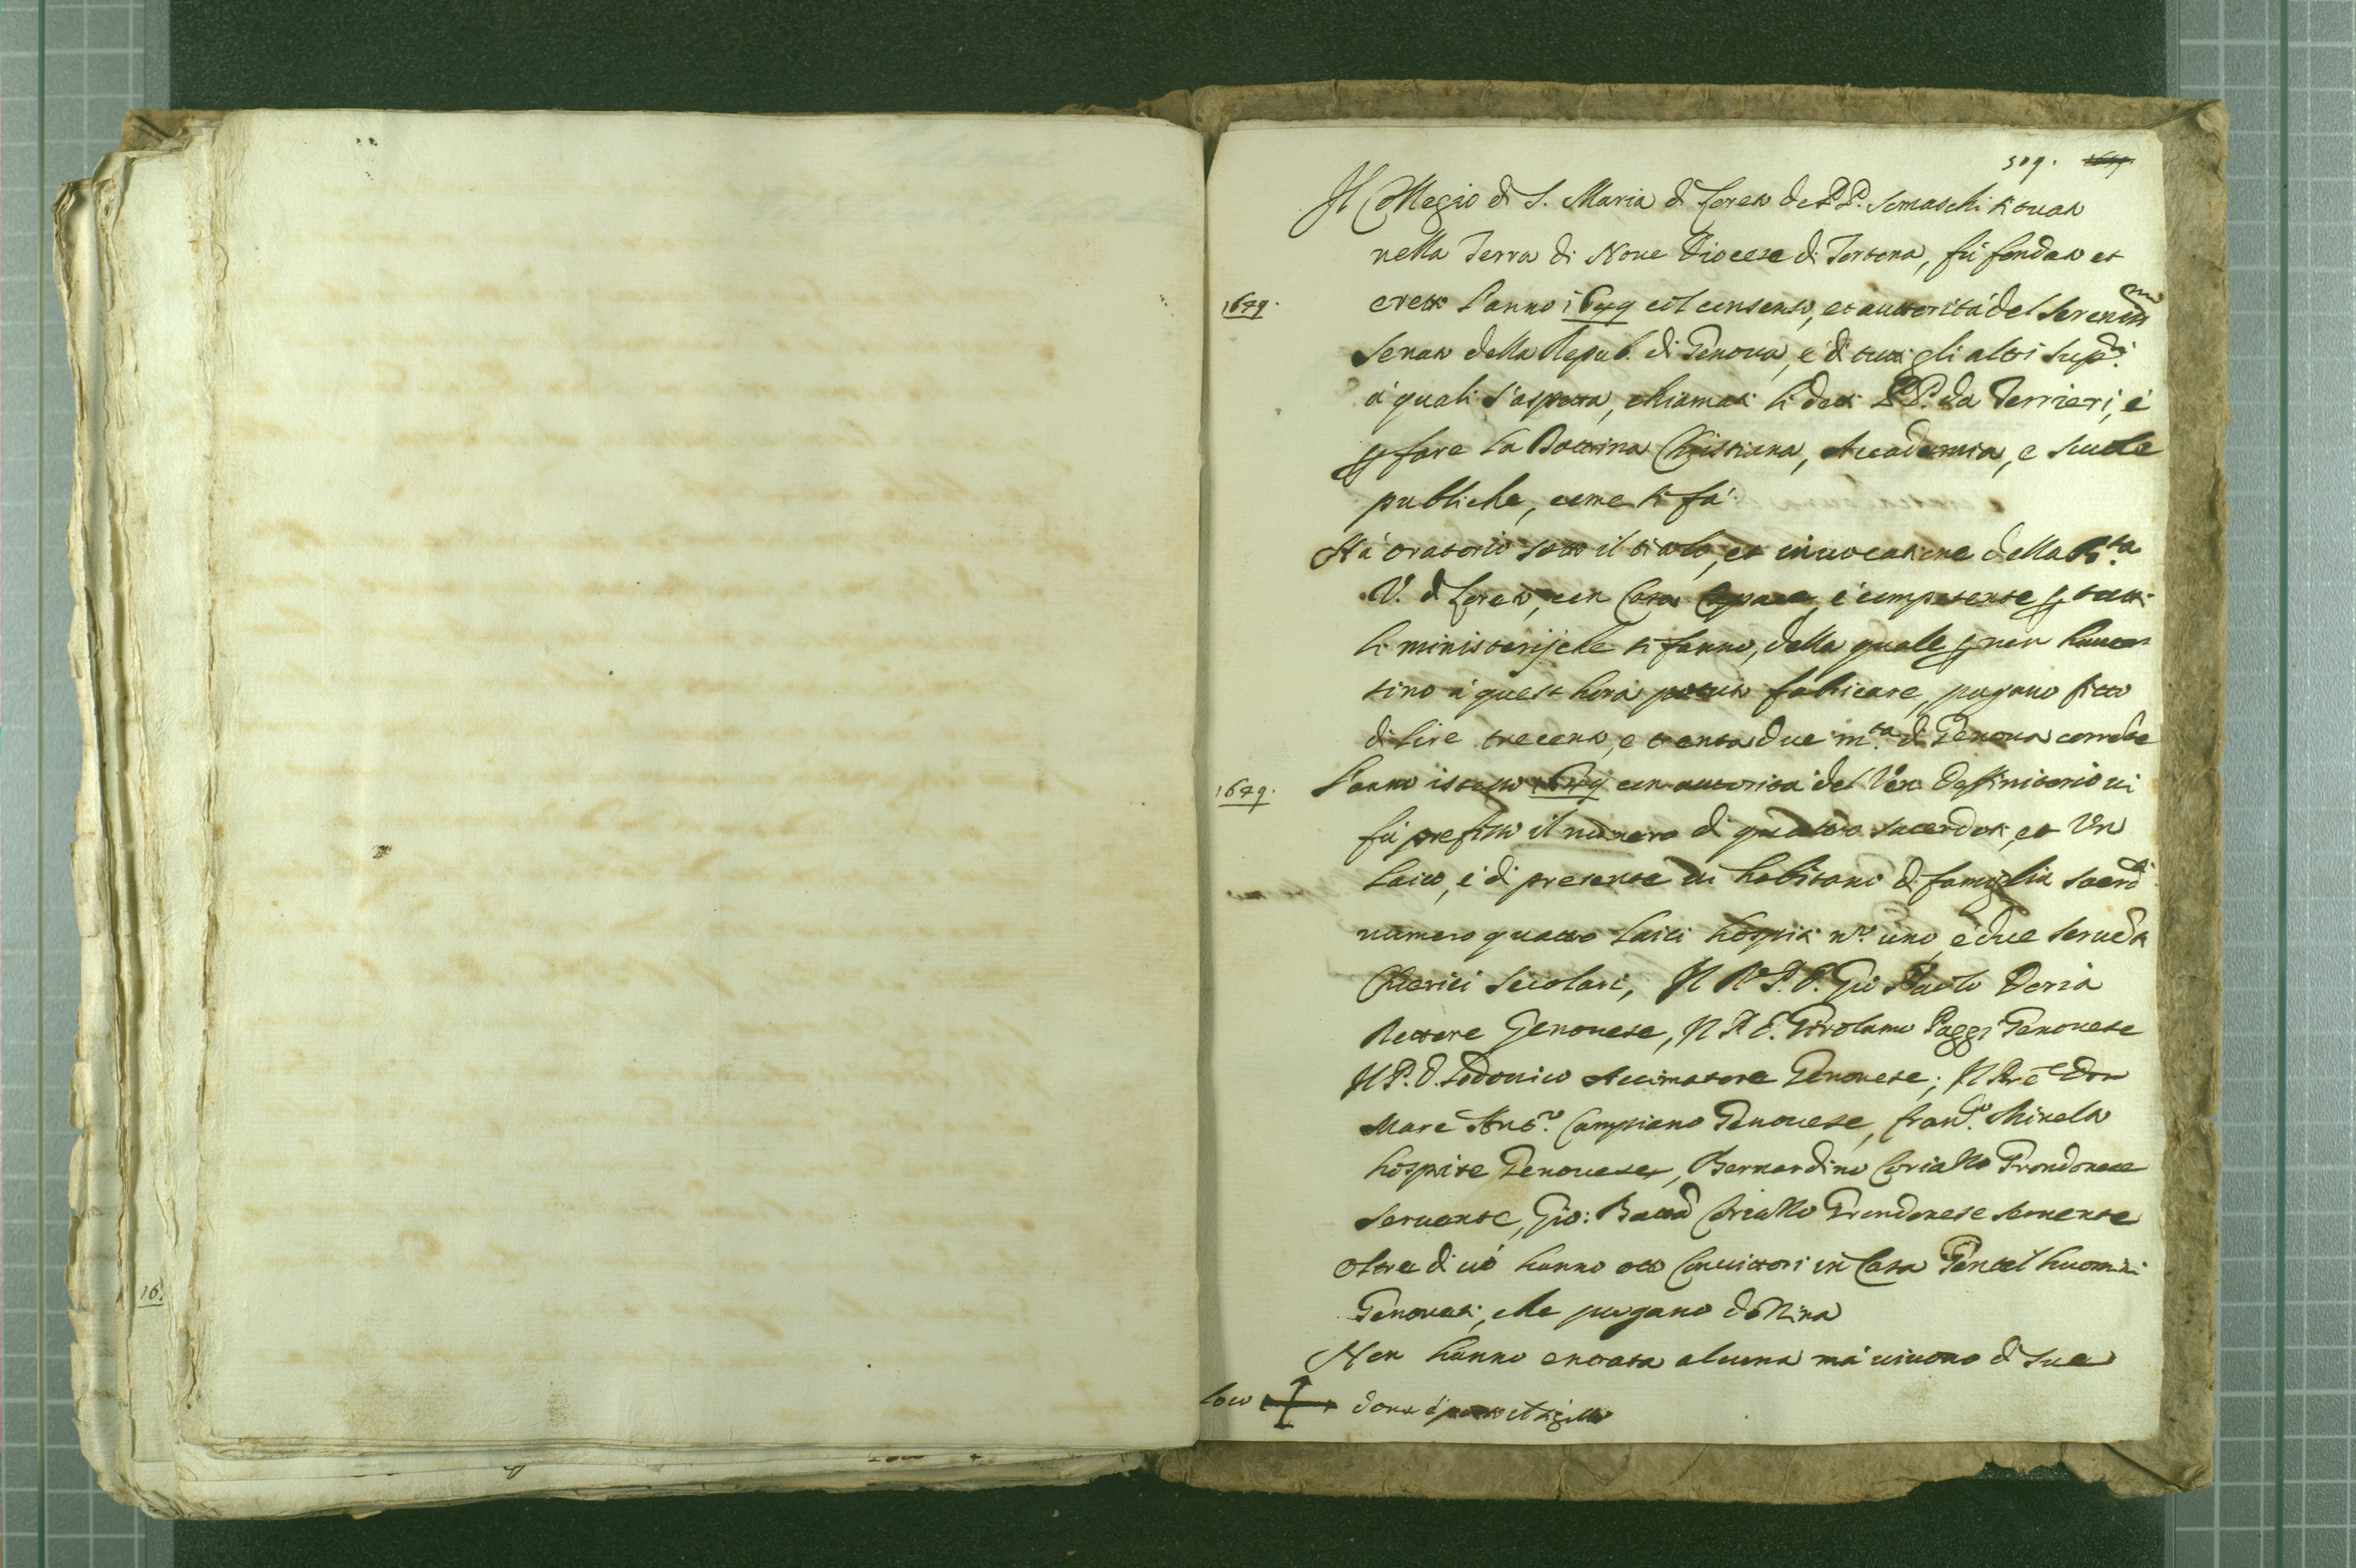 509.
Il Collegio di S. Maria di Loreto de PP. Somaschi situato
nella Terra di Nove Diocese di Tortona, fù fondato et
1649.
eretto l'anno 1649 col consenso, et auttorità del Seren.mo
Senato della Repub. di Genova, e di tutti gli altri Sup.ri
à quali s'aspetta, chiamati li detti PP. da Terrieri, e
per fare la Dottrina Christiana, Accademia, e Scuole
publiche, come si fà.
Hà oratorio sotto il titolo, et invocatione della B.ta
V. di Loreto, con Casa Capace, e competente per tutti
li ministerij che si fanno, della quale per non haver
sino à quest hora potuto fabricare, pagano fitto
di lire trecento, e trenta due m.ta di Genova corrente
1649.
L'anno istesso 1649 con auttorità del Ven. Deffinitorio vi
fù prefisso il numero di quattro sacerdoti, et Un
laico, e di presente vi habitano di famiglia sacerd.ti
numero quattro laici hospiti n.ro uno, e due serventi
Clerici secolari, Il R. P. D. Gio Paolo Doria
Rettore Genovese, Il P. D. Girolamo Paggi Genovese
Il P. D. Lodovico Genovese; Il Pre Don
Marc Ant.o Campiano Genovese, Fran.co
hospite Genovese, Bernardino Coriallo Grondonese
servente, Gio: Batta Coriallo Grondonese servente
oltre di ciò hanno otto Convittori in Casa Gentil huomini
Genovesi, che pagano dozina
Non hanno entrata alcuna mà vivono di sue
loco
16.